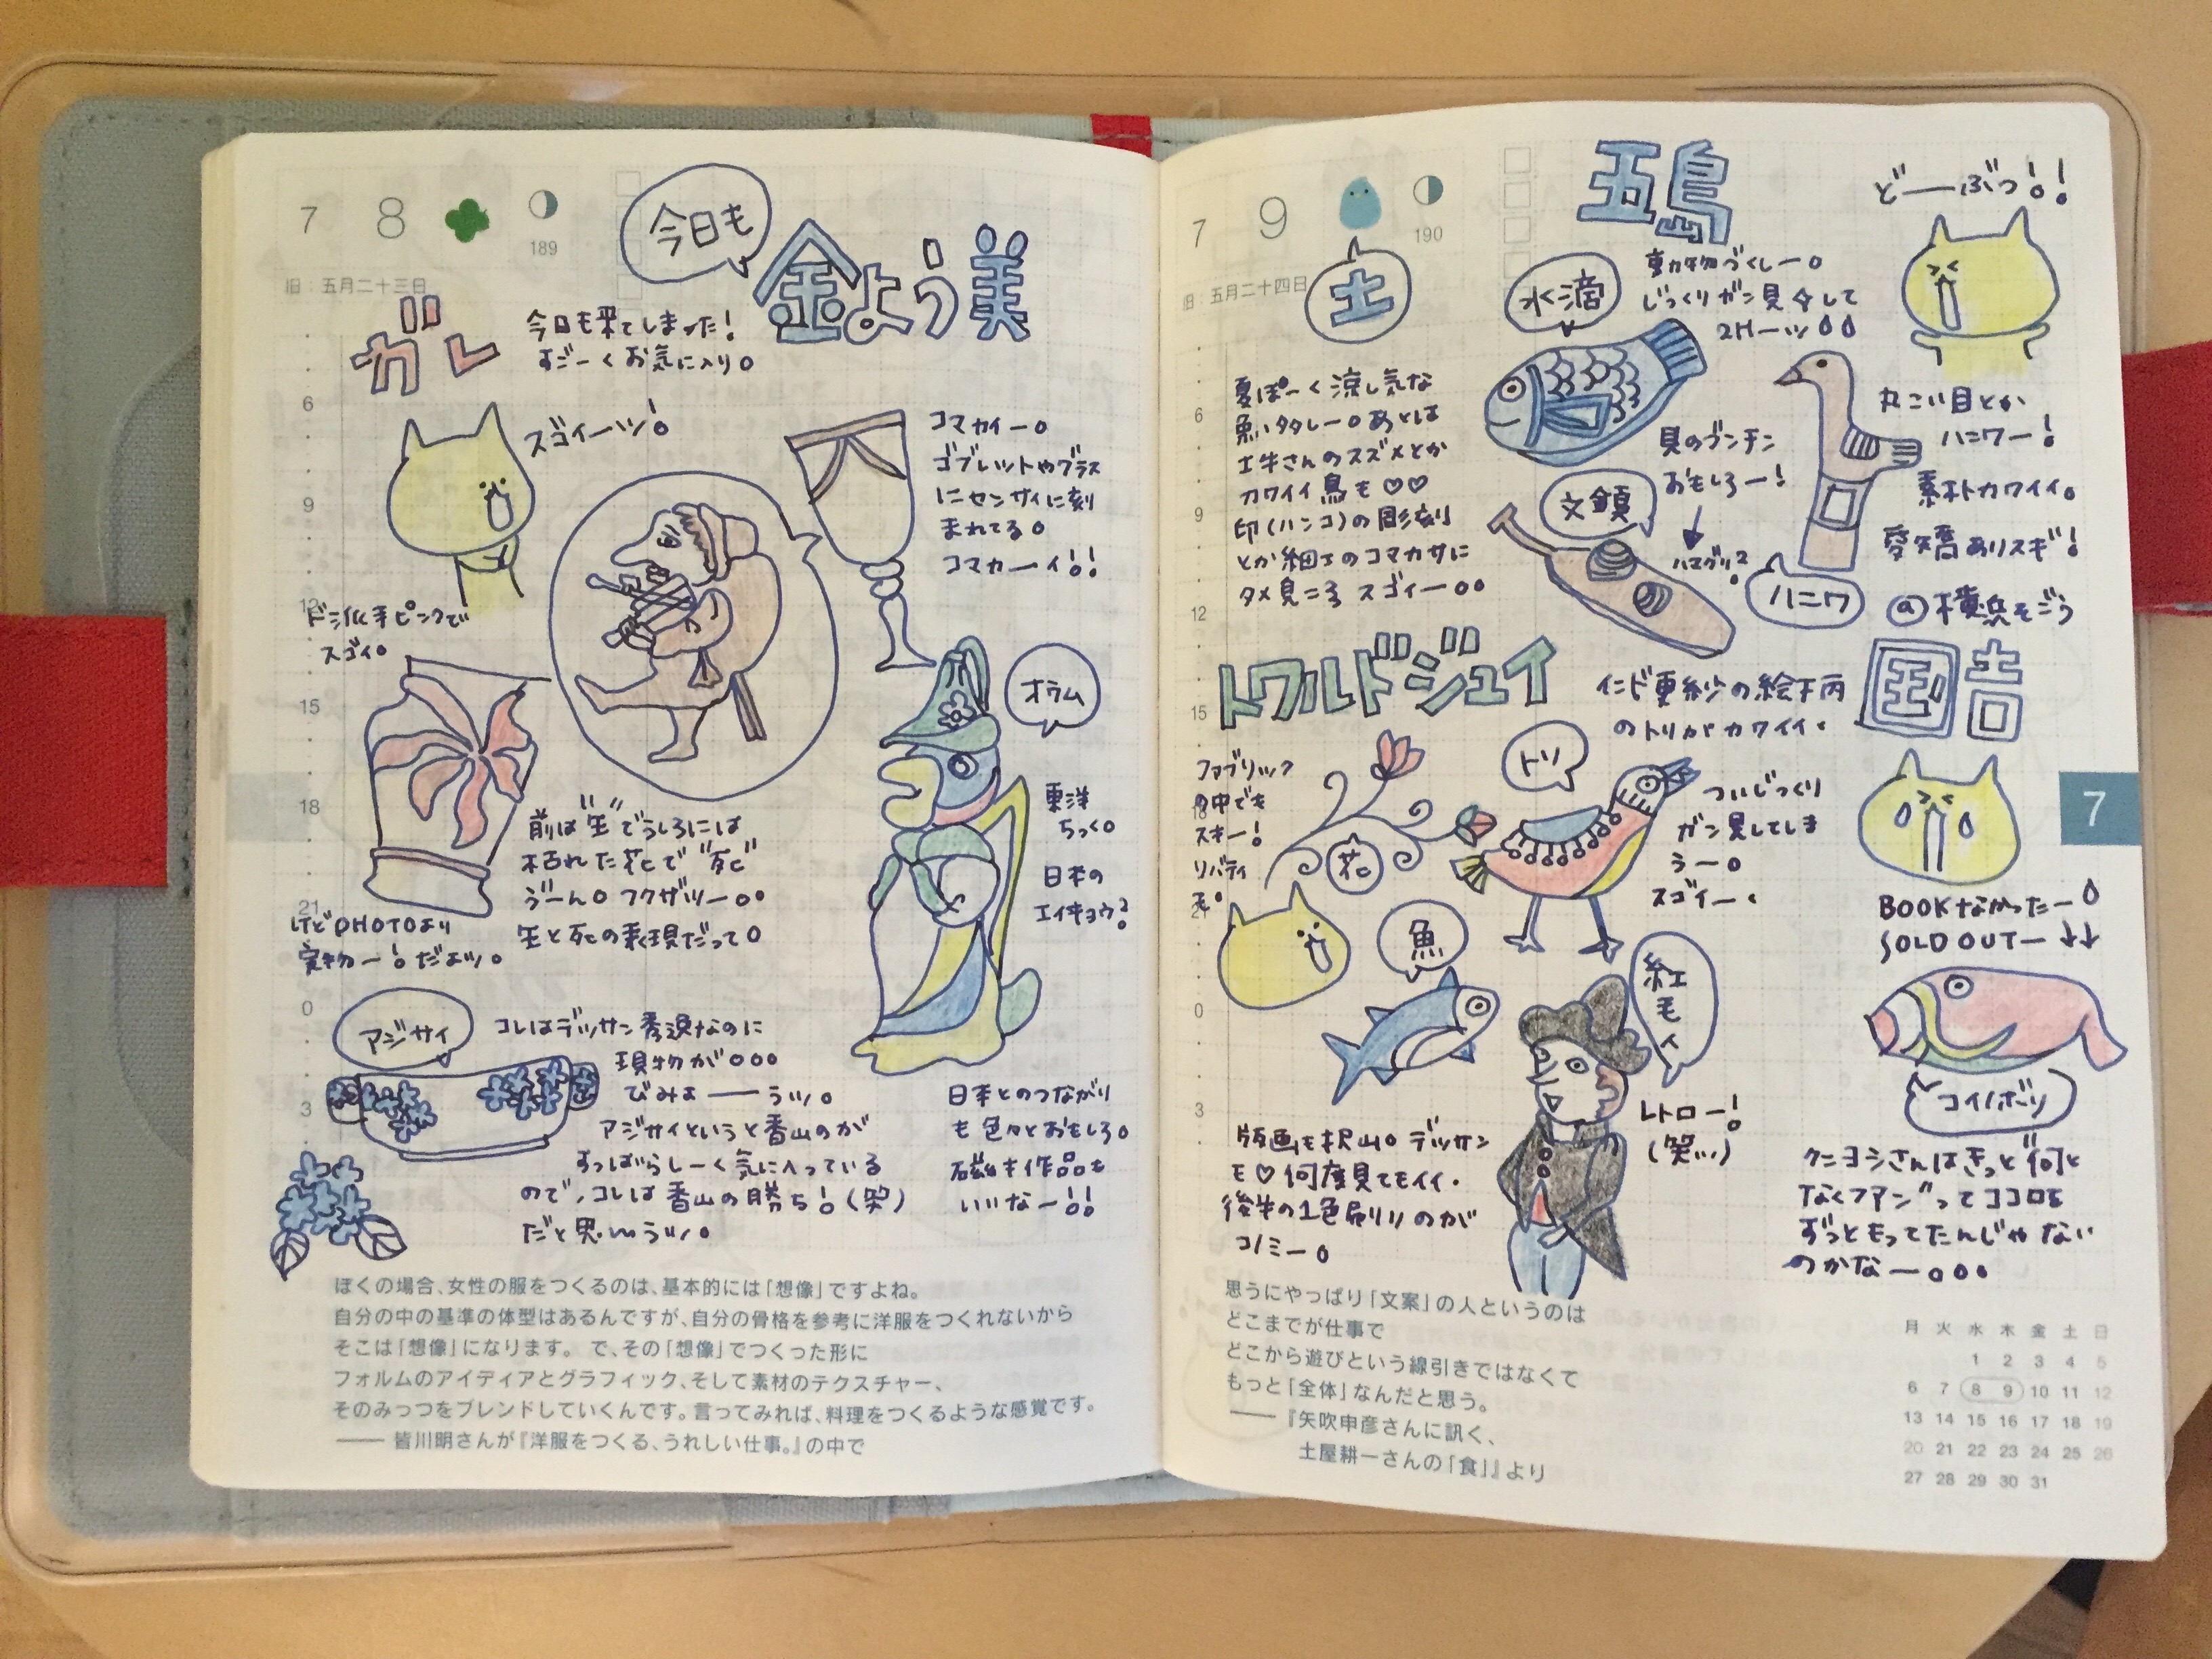 7 8
189
旧:五月二十三日
今日も
金よう美
ガレ
今日も来てしまった!
すごーくお気に入り。
スゴイーッ!
コマカイー。
ゴブレットやグラス
にセンサイに刻
まれてる。
コマカーイ!!
ピンクで
スゴイ。
オラム
東洋
ちっく。
日本の
エイキョウ?
前は"生"でうしろには
枯れた花で"死"
うーん。フクザツー。。
生と死の表現だって。
けどPHOTOより
実物ー!だよッ。
アジサイ
コレはデッサン秀逸なのに
現物が。。。
びみょーうッ。
アジサイというと香山のが
すっばらしーく気に入っている
ので、コレは香山の勝ち!(笑)
だと思いうッ。
日本とのつながり
も色々とおもしろ。
磁キ作品も
いいなー!!
6
9
12
15
18
21
0
3
ぼくの場合、女性の服をつくるのは、基本的には「想像」ですよね。
自分の中の基準の体型はあるんですが、自分の骨格を参考に洋服をつくれないから
そこは「想像」になります。 で、その「想像」でつくった形に
フォルムのアイディアとグラフィック、そして素材のテクスチャー、
そのみっつをブレンドしていくんです。言ってみれば、料理をつくるような感覚です。
―― 皆川明さんが『洋服をつくる、うれしい仕事。』の中で
7 9
190
旧:五月二十四日
土
五島
どーぶつ!!
水滴
動物づくしー。
じっくりガン見々して
2Hーッ
夏ぽーく涼し気な
魚い多しー。あとは
土牛さんのスズメとか
カワイイ鳥も♡♡
印(ハンコ)の彫刻
とか細工のコマカサに
タメ見こる スゴイー。。
貝のブンチン
おもしろー!
文鎮
ハマグリ?
丸こい目とか
ハニワー!
素朴カワイイ。
愛嬌ありスギ!
ハニワ
@横浜そごう
トワルドジュイ
インド更紗の絵柄
のトリがカワイイ.
国吉
ファブリック
の中でも
スキー!
リバティ
も。
トリ
花
ついじっくり
ガン見してしま
うー。
スゴイー.
魚
紅毛人
BOOKなかったー
SOLD OUTー↓↓
コイノボリ
レトロー!
(笑ッ)
版画も沢山。デッサン
も♡何度見てもイイ.
後半の1色刷りのが
コノミー。
クニヨシさんはきっと"何と
なくファン"ってココロを
ずっともってたんじゃない
のかなー。。。
6
9
12
15
18
21
0
3
7
思うにやっぱり「文案」の人というのは
どこまでが仕事で
どこから遊びという線引きではなくて
もっと「全体」なんだと思う。
―― 『矢吹申彦さんに訊く、
土屋耕一さんの「食」』より
月 火 水 木 金 土 日
1 2 3 4 5
6 7 8 9 10 11 12
13 14 15 16 17 18 19
20 21 22 23 24 25 26
27 28 29 30 31